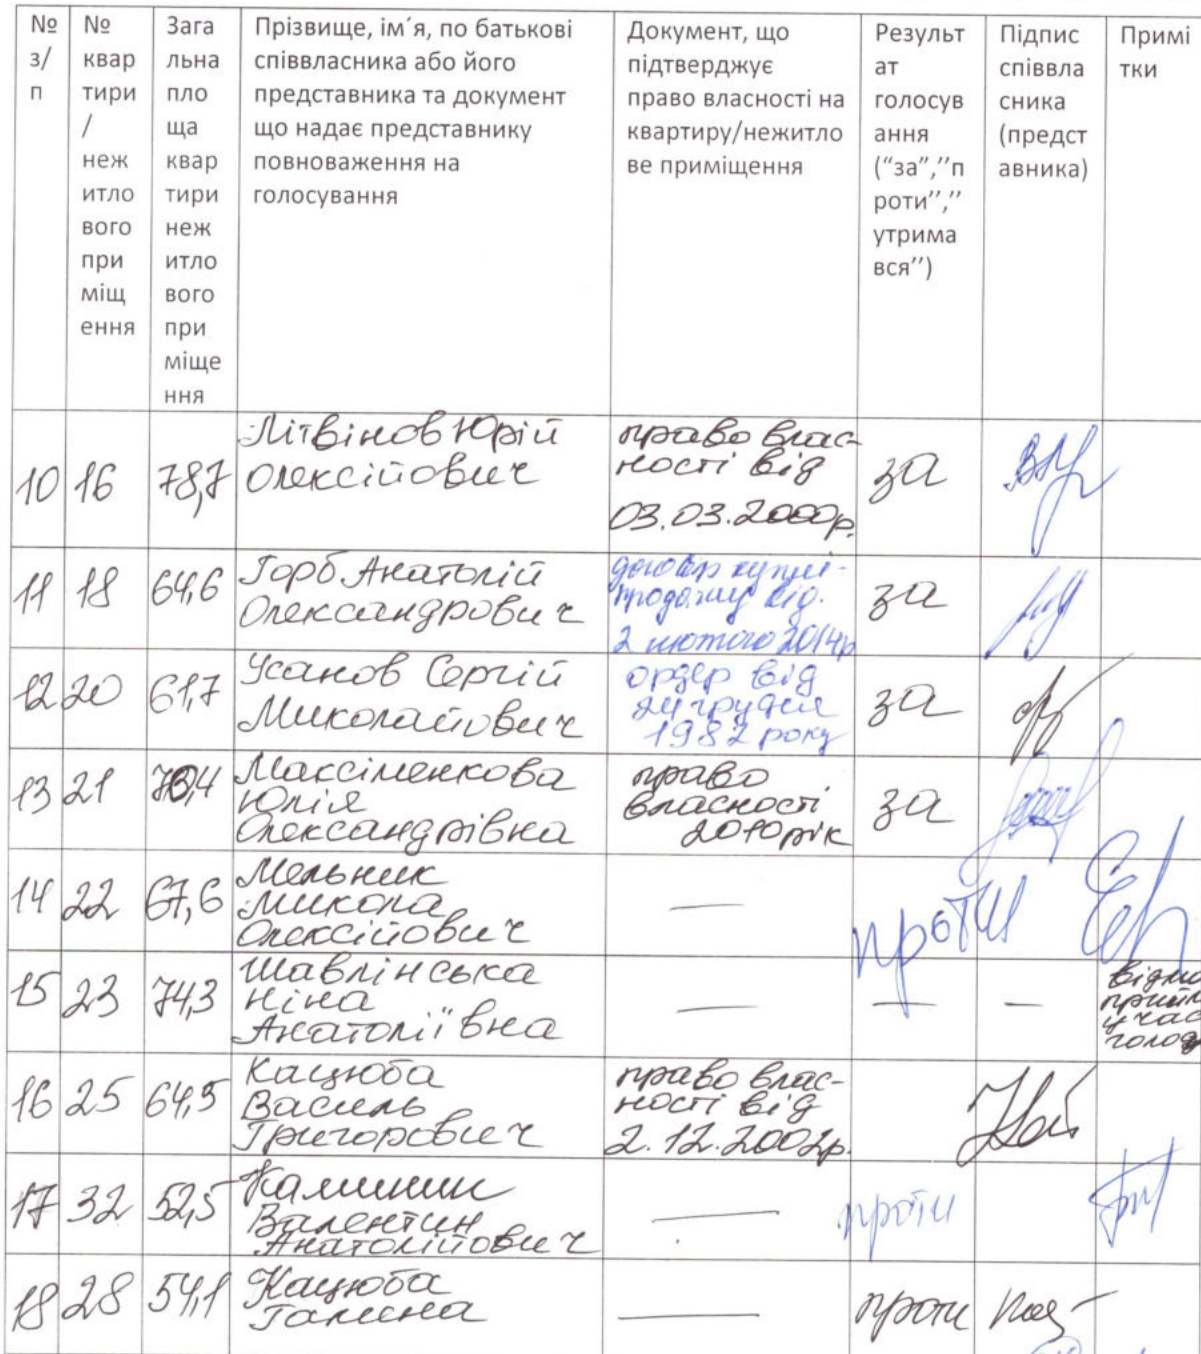 № з/п
№ квартири / нежитлового приміщення
Загальна площа квартири нежитлового приміщення
Прізвище, ім´я, по батькові
співвласника або його
представника та документ
що надає представнику
повноваження на
голосування
Документ, що
підтверджує
право власності на
квартиру/нежитло
ве приміщення
Результ
ат
голосув
ання
(“за”,’’п
роти’’,’’
утрима
вся’’)
Підпис
співвла
сника
(предст
авника)
Примі
тки
10 16 78,7
Літвінов Юрій
Олексійович
право влас-
ності від
03.03.2000р.
за
11 18 64,6
Горб Анатолій
Олександрович
договір купці-
продажу від.
2 лютого 2014р
за
12 20 61,7
Усанов Сергій
Миколайович
ордер від
24 грудня
1982 року
за
13 21
Максіменкова
Юлія
Олександрівна
право
власності
2010 рік
за
14 22 67,6
Мельник
Микола
Олексійович
—
проти
15 23 74,3
Шавлінська
Ніна
Анатоліївна
— — —
відмо
прийн
участ
голос
16 25 64,5
Кацюба
Василь
Григорович
право влас-
ності від
2.12.2002р.
17 32 52,5
Валентин
Анатолійович
—
проти
18 28 54,1
Кацюба
Галина
—
проти